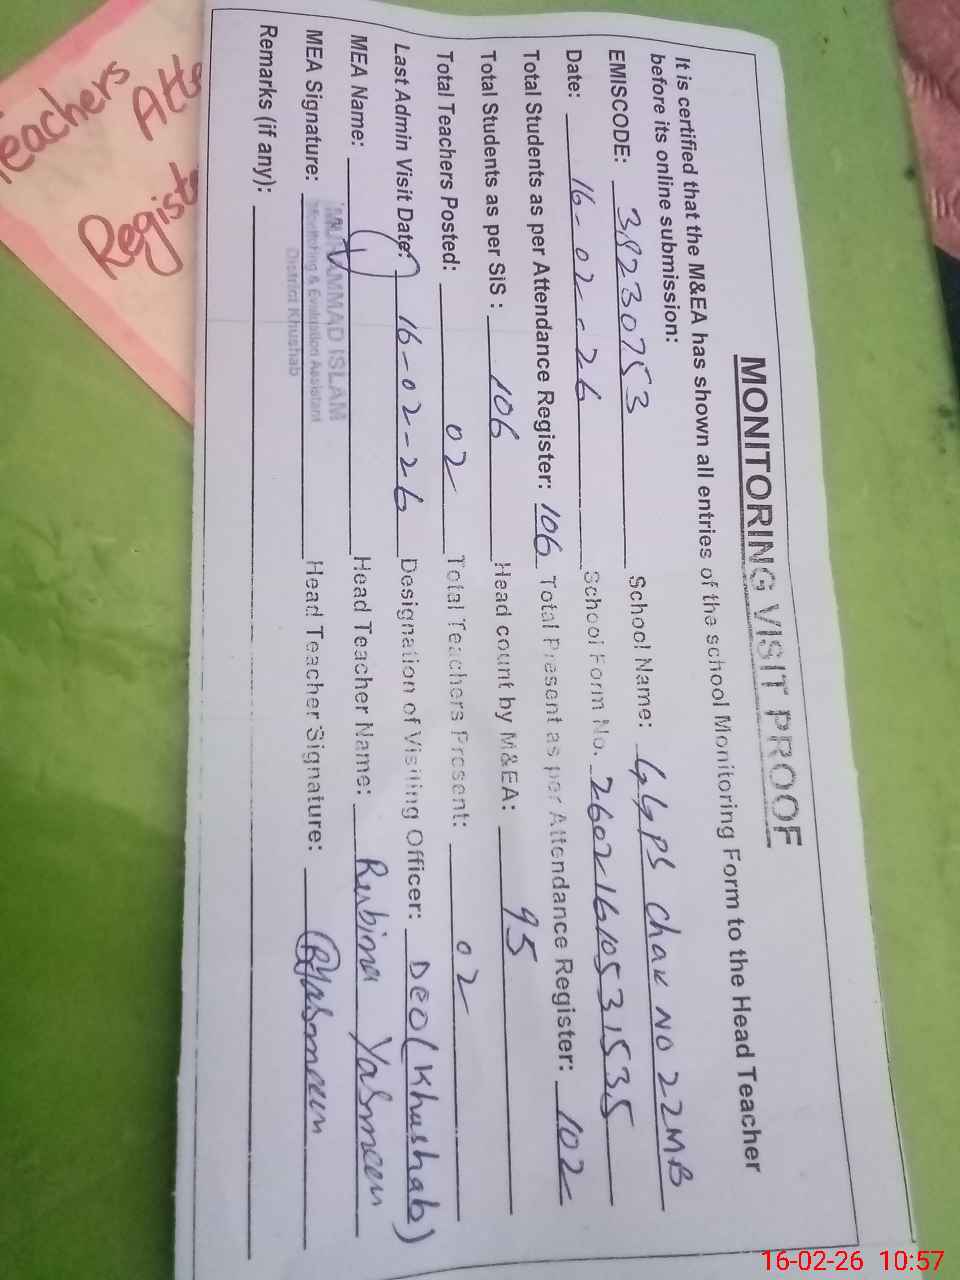 Teachers
Atte
Registe
MONITORING VISIT PROOF
It is certified that the M&EA has shown all entries of the school Monitoring Form to the Head Teacher
before its online submission:
EMISCODE: 38230753 School Name: GGPS Chak NO 22MB
Date: 16-02-26 School Form No. 26021610531535
Total Students as per Attendance Register: 106 Total Present as per Attendance Register: 102
Total Students as per SiS : 106 Head count by M&EA: 95
Total Teachers Posted: 02 Total Teachers Present: 02
Last Admin Visit Date: 16-02-26 Designation of Visiting Officer: DEO (Khushab)
MEA Name: Head Teacher Name: Rubina Yasmeen
MUHAMMAD ISLAM
MEA Signature: Head Teacher Signature: RYasmeen
Monitoring & Evaluation Assistant
District Khushab
Remarks (if any):
16-02-26 10:57